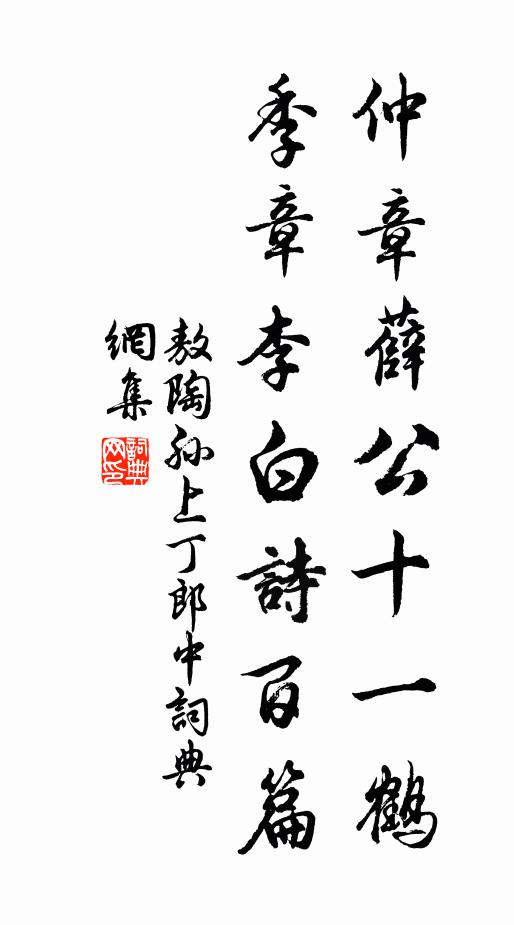 仲章薛公十一鶴
季章李白詩百篇
敖陶孫上丁郎中詞典
網集
詞典
网印